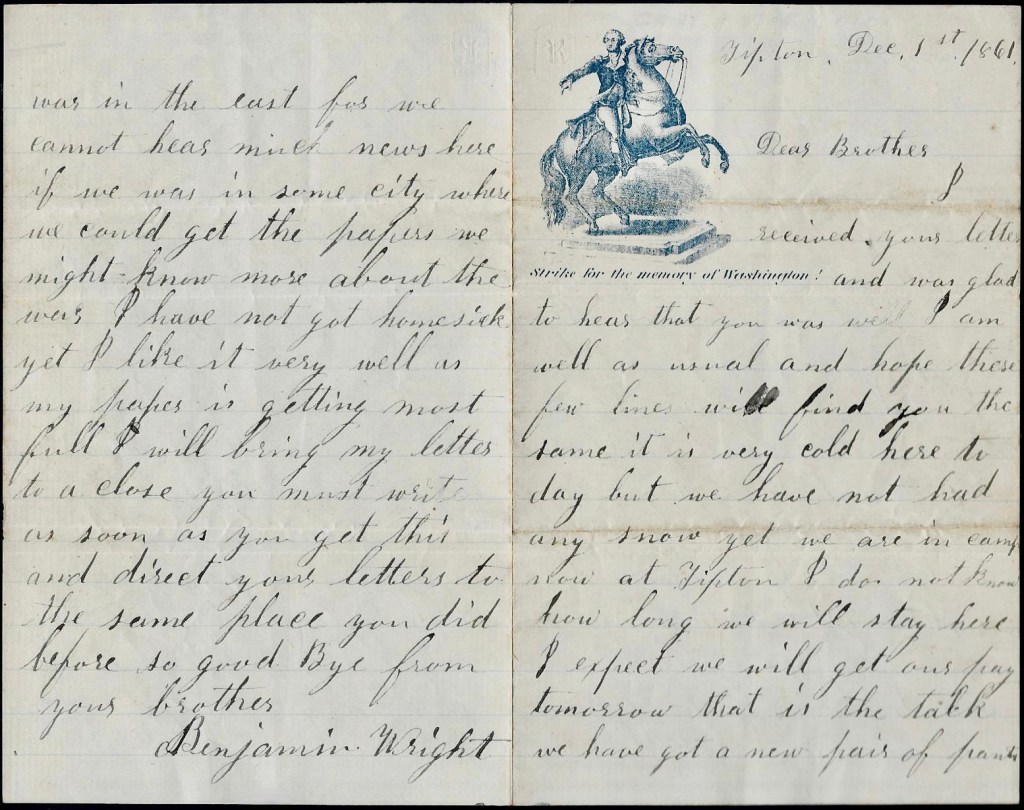 Tipton, Dec, 1st. 1861.
Dear Brother
I
received your letter
Strike for the memory of Washington!
and was glad
to hear that you was well I am
well as usual and hope these
few lines will find you the
same it is very cold here to
day but we have not had
any snow yet we are in camp
now at Tipton I do not know
how long we will stay here
I expect we will get our pay
tomorrow that is the talk
we have got a new pair of pants
was in the east for we
cannot hear much news here
if we was in some city where
we could get the papers we
might know more about the
war I have not got homesick
yet I like it very well as
my paper is getting most
full I will bring my letter
to a close you must write
as soon as you get this
and direct your letters to
the same place you did
before so good Bye from
your brother
Benjamin Wright